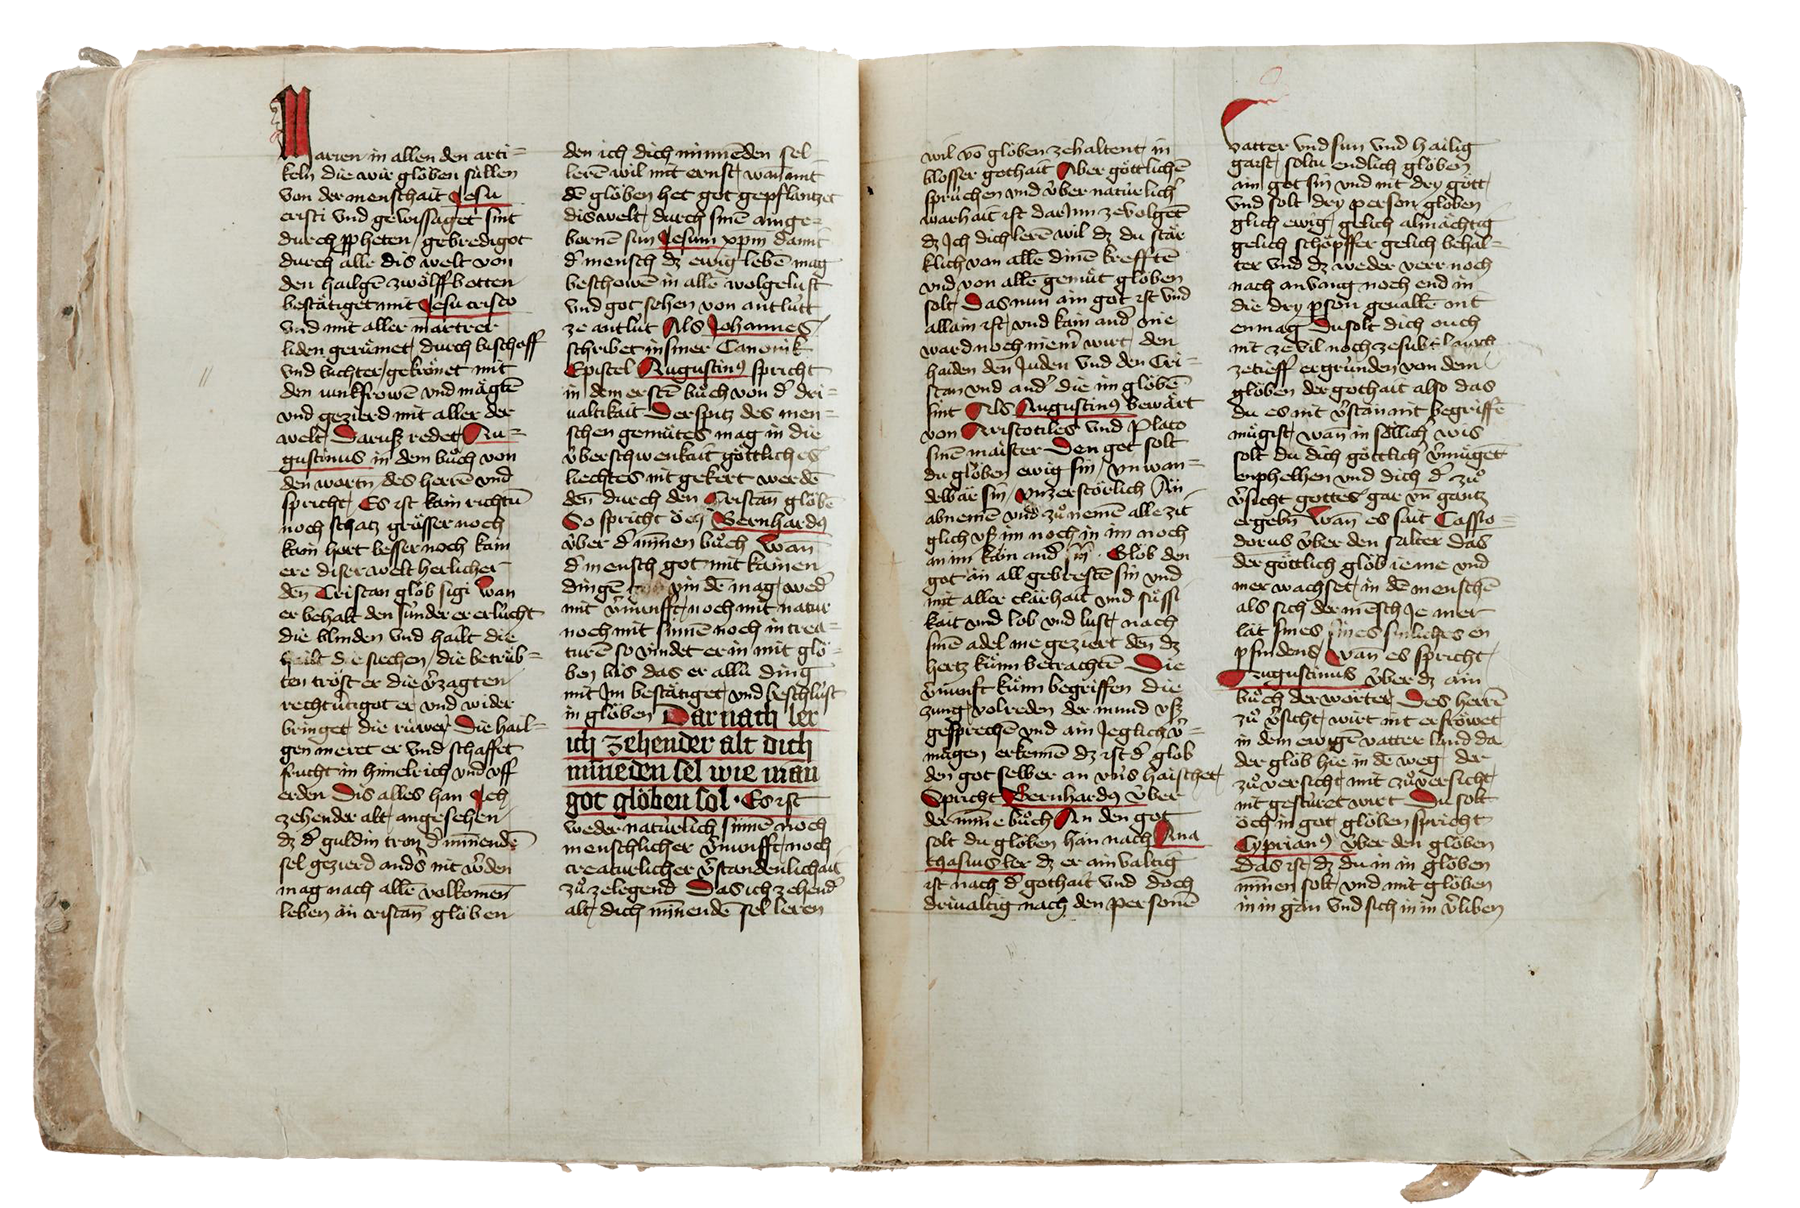 Marien in allen den arti-
keln die wir gloͤben suͤllen
von der menschait Jesu
cristi vnd gewissaget sint
durch ꝓpheten / gebredigot
durch alle dis welt von
den hailgē zwoͤlff botten
bestaͤtiget mit Jesu cristo
vnd mit aller martrer
liden geruͤmet / durch bischoff
vnd bichter / gekroͤnet mit
den iunkfrowen vnd maͤgtē
vnd gezierd mit aller der
welt / Daruſz redet Au-
gustinus in dem buͦch von
den wortn / des herren vnd
spricht / Es ist kain richtū
noch schatz groͤsser noch
kain hort besser noch kain
ere diser welt herlicher
den Cristan gloͤb sigi Wan
er behalt den sünder er erlücht
die blinden vnd hailt die
die siechen / die betruͤb-
ten troͤst er die v̄zagten
rechtuͤtigot er vnd wider
bringet die rüwer Die hail-
gen meret er vnd schaffet
frucht in himelrich vnd vff
erden Dis alles han Ich
zehender alt / angesehen
dz d' guldin tron d' minnendē
sel gezierd anders nit w'den
mag nach allē volkomen
leben aͤn cristan gloͤben
den ich dich minnēden sel
lerē wil mit ernst / wan mit
dē gloͤben het got gepflantzet
dis welt / durch sinē ainge-
bornē sun Jesum xpm damit
d' mensch dz ewig lebē mag
beschowē in alle wolgelust
vnd got sehen von antlütt
ze antlüt Als Johannes
schribet in siner Canonik
Epistel Augustinꝰ spricht
in dem erstē buͦch von d' dri-
ualtikait Der spitz des men-
schen gemuͤtes mag in die
v̄berschwenkait goͤttliches
liechtes nit gekert werdē
den durch den Cristan gloͤbē
So spricht oͤch Bernhardꝰ
v̄ber d' minnen buͦch Wan
d' mensch got mit kainen
dingē vinden mag / wed'
mit v'nunfft / noch mit natur
noch mit sinnē noch in crea-
turē so vindet er in mit gloͤ-
ben bis das er allü ding
mit Im bestaͤtiget / vnd beschlüst
in gloͤben Darnach ler
ich zehender alt dich
minneden sel wie man
got gloͤben sol · Es ist
weder natürlich sinnē noch
menschlicher v'nunfft / noch
creaturlicher v'standenlichait
zuͦ zelegend Das ich zehend'
alt / dich minnendē sel leren
wil vō gloͤben ze haltent / in
blosser gothait Aber goͤttlichē
sprüchen vnd v̄ber natürlich'
warhait ist dar Inn zevolgēt
dz Ich dich lerē wil dz du staͤr
klich von allē dinē krefftē
vnd von allē gemuͤt gloͤben
solt / Das nun ain got ist vnd
allain ist / vnd kain and' nie
ward noch niem' wirt / den
haiden den Juden vnd den Cri-
stan vnd and' die im gloͤbē
sint Als Augustinꝰ bewaͤrt
von Aristotiles vnd Plato
sinē maister Den got solt
du gloͤben ewig sin / vnwan-
delbaͤr sin / vnzerstoͤrlich Aͤn
abnemē vnd zuͦnemē alle zit
glich vſz im noch in im noch
an im kain and' sin · Gloͤb den
got aͤn all gebrestē sin vnd
mit aller clarhait vnd suͤssi
kait vnd lob vnd lust / nach
sinē adel nie geziert den dz
hertz künn betrachtē Die
v'nunft künn begriffen die
zung / volreden der mund vſz
gesprechē vnd ain Jeglich v'-
mügen erkennē dz ist d' gloͤb
den got selber an vns haischet
Spricht Bernhardꝰ v̄ber
der minne buͦch An den got
solt du gloͤben haͤn nach Ana
thasius ler dz er ainvaltig
ist nach d' gothait vnd doch
driualtig nach den personē
vatter vnd sun vnd hailig
gaist / soltu endlich gloͤben
ain got sin vnd nit dry goͤtt /
vnd solt dry person gloͤben
glich ewig / gelich almaͤchtig
gelich schoͤpffer gelich behal-
ter vnd dz weder verr noch
nach anvang noch end in
die dry ꝑson geuallē nit
enmag Du solt dich ouch
nit ze vil noch ze subtil noch
ze tieff ergründen von dem
gloͤben der gothait also das
du es nit v'stan nit begriffē
mügist / wan in soͤllich' wis
solt du dich goͤttlich v'mügēt
enphelhen vnd dich d' zuͦ
v'sicht gottes gar vn gantz
ergebn̄ Wan es sait Cassio-
dorus v̄ber den salter das
der goͤttlich gloͤb ie me vnd
mer wachset / in dē menschē
als sich der mēsch Je mer
laͤt sines sinlichs en
pfindens / wan es spricht /
Augustinus v̄ber dz ain
buͦch der worter / Des herrē
zuͦv'sicht / wirt nit erfroͤwet /
in dem ewigē vatter land da
der gloͤb hie in dē weg der
zuͦversicht / mit zuͦversicht
nit gestüret wirt Du solt
oͤch in got gloͤben spricht
Cyprianꝰ v̄ber den gloͤben
Das ist dz du in in gloͤben
minnen solt / vnd mit gloͤben
in in gān vnd sich in in v'liben